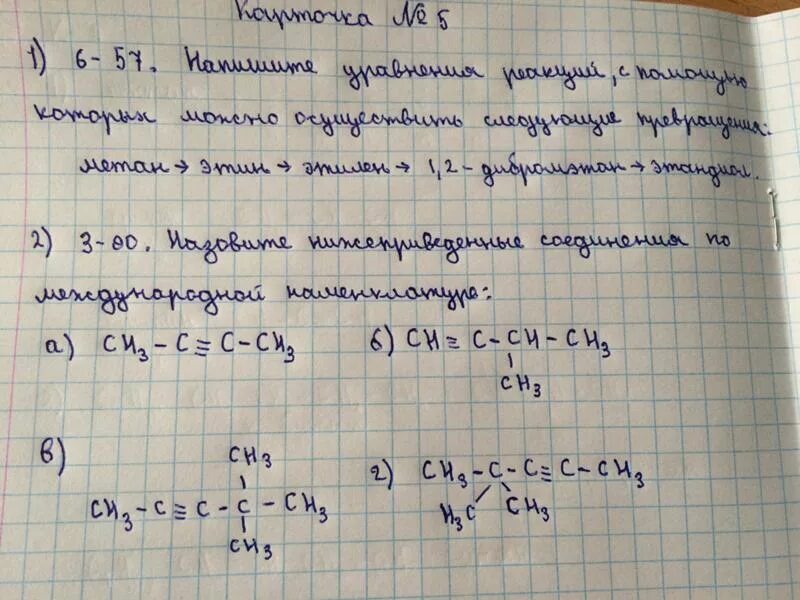 Карточка № 5
1) 6-57. Напишите уравнения реакций, с помощью
которых можно осуществить следующие превращения:
метан → этин → этилен → 1,2-дибромэтан → этандиол.
2) 3-80. Назовите нижеприведенные соединения по
международной номенклатуре:
а) CH₃-C≡C-CH₃ б) CH≡C-CH-CH₃
CH₃
в) CH₃
CH₃-C≡C-C-CH₃
CH₃
г) CH₃-C-C≡C-CH₃
H₃C CH₃